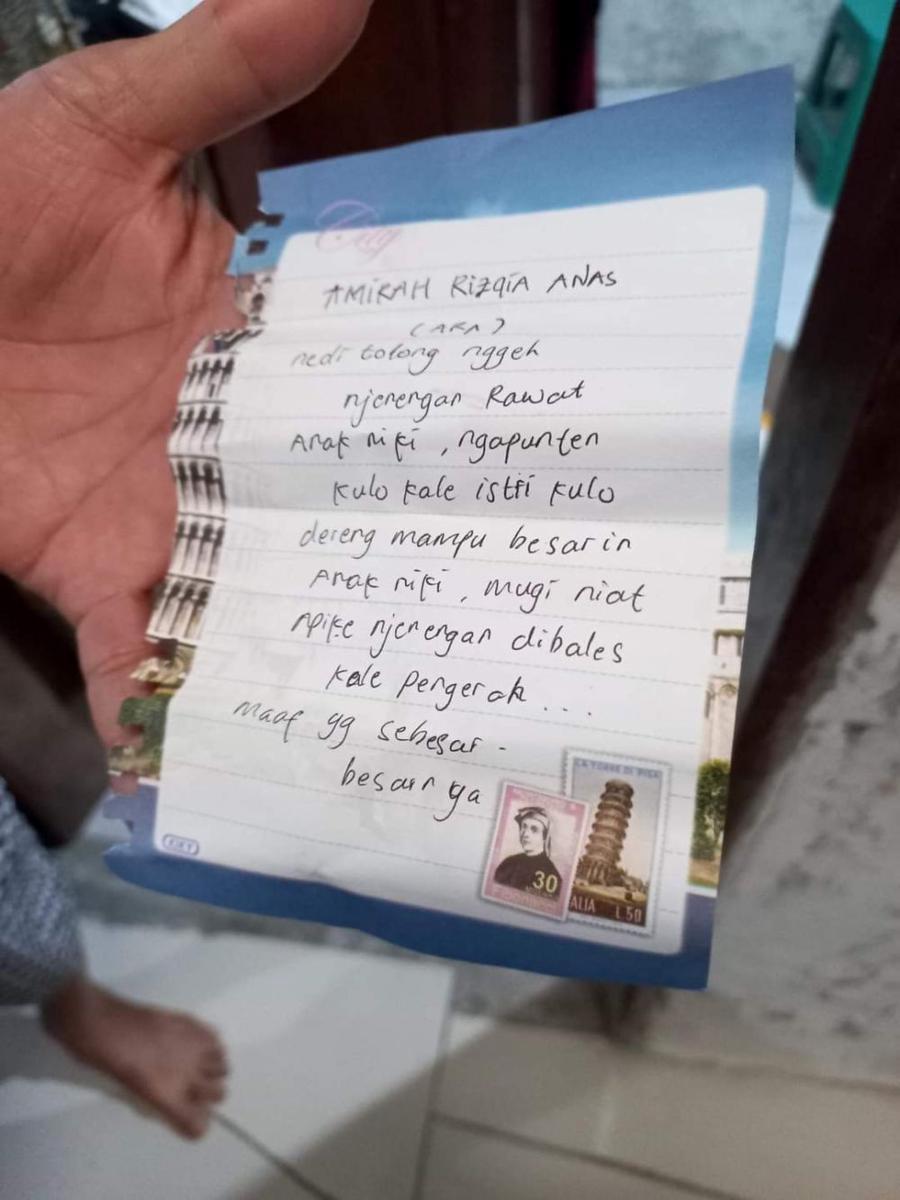 City
AMIRAH RIZQIA ANAS
(ARA)
nedi tolong nggeh
njenengan Rawat
Anak niki, ngapunten
kulo kale istri kulo
dereng mampu besarin
Anak niki, mugi niat
Apike njenengan dibales
kale pengeran...
Maaf yg sebesar-
besarnya
LA TORRE DI PISA
30
ALIA L.50